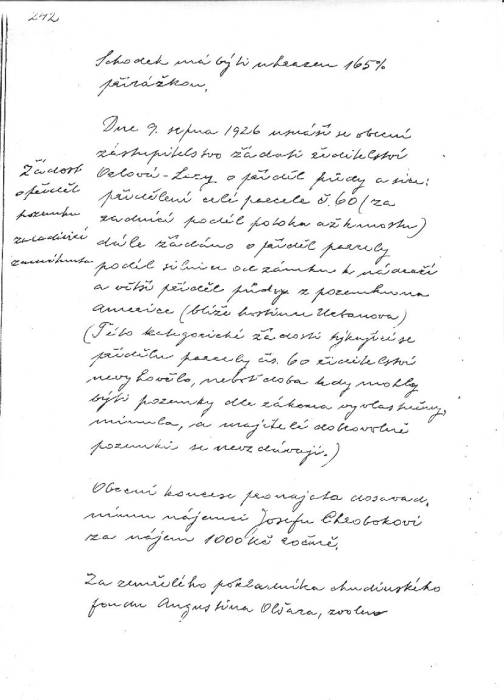 242
Schodek má býti uhrazen 165%
přirážkou.
Dne 9. srpna 1926 usnáší se obecní
zastupitelstvo žádati ředitelství
Orlová-Lazy o příděl půdy a sice:
přidělení celé parcele č. 60 (za
zadnicí podél potoka až k mostu)
dále žádáno o příděl parcely
podél silnice od zámku k nádraží
a větší příděl půdy z pozemku na
Americe (blíže hostince Urbanova)
(Této kategorické žádosti týkající se
přídělu parcely čís. 60 ředitelství
nevyhovělo, neboť doba kdy mohly
býti pozemky dle zákona vyvlastněny,
minula, a majitelé dobrovolně
pozemků se nevzdávají.)
Žádost
o příděl
pozemku
zámku
Obecní koncese pronajata dosavad.
nímu nájemci Josefu Chrobokovi
za nájem 1000 Kč ročně.
Za zemřelého pokladníka chudinského
fondu Augustina Olšara, zvolen